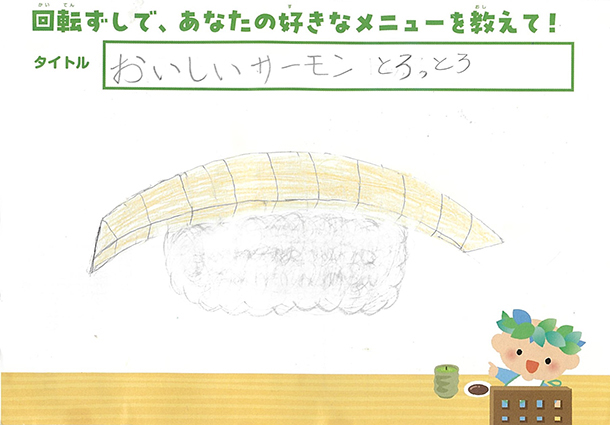 回転ずしで、あなたの好きなメニューを教えて！
タイトル おいしいサーモン とろっとろ